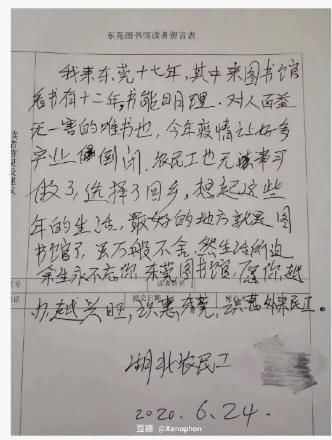 东莞图书馆读者留言表
我来东莞十七年，其中来图书馆
看书有十二年，书能明理。对人百益
无一害的唯书也，今年疫情让好多
产业倒闭，农民工也无事可
做了，选择了回乡，想起这些
年的生活，最好的地方就是图
书馆了，虽万般不舍，然生活所迫，
余生永不忘你，东莞图书馆，愿你越
办越兴旺，识惠东莞，识惠外来民工。
湖北农民工
2020.6.24.
@Xenophon